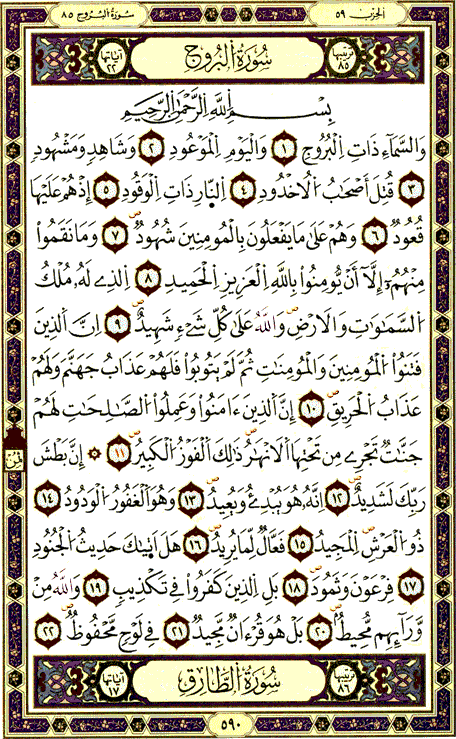 الحزب ٥٩
سُورَةُ البُرُوج ٨٥
ترتيبها ٨٥ سُورَةُ اْلبُرُوج آياتها ٢٢
بِسْمِ اِللَّهِ اِلرَّحْمَٰنِ اِلرَّحِيمِ
وَالسَّمَآءِ ذَاتِ اِلْبُرُوجِ ١ وَالْيَوْمِ اِلْمَوْعُودِ ٢ وَشَاهِدٍ وَمَشْهُودٍ
٣ قُتِلَ أَصْحَٰبُ اُلُاخْدُودِ ٤ اِلنّ۪ارِ ذَاتِ اِلْوَقُودِ ٥ إِذْ هُمْ عَلَيْهَا
قُعُودٌ ٦ وَهُمْ عَلَىٰ مَا يَفْعَلُونَ بِالْمُومِنِينَ شُهُودٌ ٧ وَمَا نَقَمُواْ
مِنْهُمُۥٓ إِلَّآ أَنْ يُّومِنُواْ بِاللَّهِ اِلْعَزِيزِ اِلْحَمِيدِ ٨ اِلذِے لَهُۥ مُلْكُ
اُلسَّمَٰوَٰتِ وَالَارْضِ وَاللَّهُ عَلَىٰ كُلِّ شَےْءٍ شَهِيدٌ ٩ اِنَّ اَلذِينَ
فَتَنُواْ اُلْمُومِنِينَ وَالْمُومِنَٰتِ ثُمَّ لَمْ يَتُوبُواْ فَلَهُمْ عَذَابُ جَهَنَّمَ وَلَهُمْ
عَذَابُ اُلْحَرِيقِ ١٠ إِنَّ اَلذِينَ ءَامَنُواْ وَعَمِلُواْ اُلصَّٰلِحَٰتِ لَهُمْ
جَنَّٰتٌ تَجْرِے مِن تَحْتِهَا اَلَانْهَٰرُ ذَٰلِكَ اَلْفَوْزُ اُلْكَبِيرُ ١١ ۞ إِنَّ بَطْشَ
رَبِّكَ لَشَدِيدٌ ١٢ اِنَّهُۥ هُوَ يُبْدِۓُ وَيُعِيدُ ١٣ وَهُوَ اَلْغَفُورُ اُلْوَدُودُ ١٤
ذُو اُلْعَرْشِ اِلْمَجِيدُ ١٥ فَعَّالٌ لِّمَا يُرِيدُ ١٦ هَلَ اَت۪يٰكَ حَدِيثُ اُلْجُنُودِ
١٧ فِرْعَوْنَ وَثَمُودَ ١٨ بَلِ اِلذِينَ كَفَرُواْ فِے تَكْذِيبٍ ١٩ وَاللَّهُ مِنْ
وَّرَآئِهِم مُّحِيطٌ ٢٠ بَلْ هُوَ قُرْءَانٌ مَّجِيدٌ ٢١ فِے لَوْحٍ مَّحْفُوظٌ ٢٢
ترتيبها ٨٦ سُورَةُ اْلطَّارِق آياتها ١٧
٥٩٠